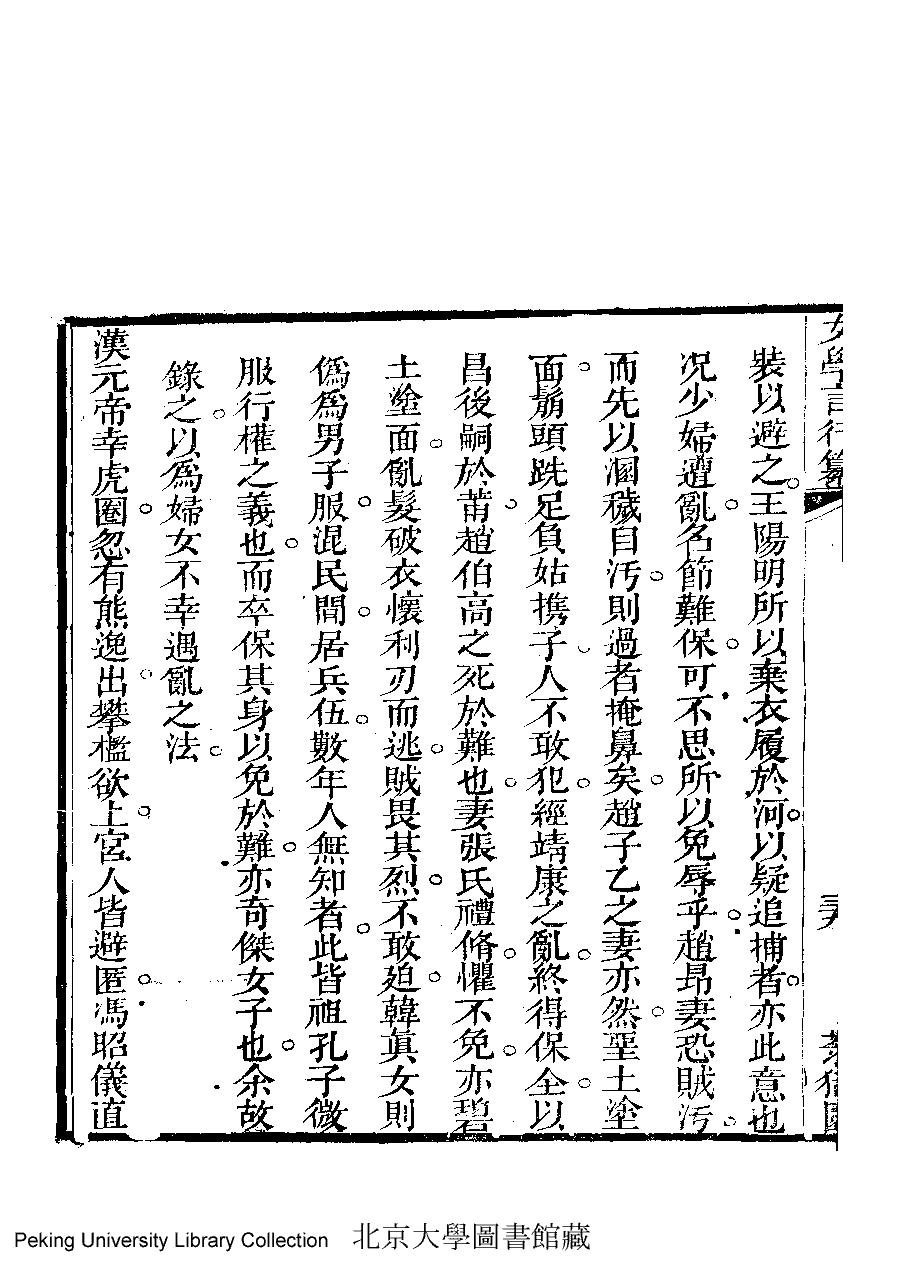 女學言行纂
裝以避之。王陽明所以棄衣履於河。以疑追捕者。亦此意也
况少婦遭亂。名節難保。可不思所以免辱乎。趙昂妻恐賊汚。
而先以溷穢自汚。則過者掩鼻矣。趙子乙之妻亦然。堊土塗
面。鬅頭跣足負姑携子。人不敢犯。經靖康之亂。終得保全。以
昌後嗣於莆。趙伯高之死於難也。妻張氏禮脩。懼不免。亦碧
土塗面。亂髮破衣懷利刃而逃。賊畏其烈。不敢廹。韓眞女則
僞爲男子服。混民間。居兵伍。數年人無知者。此皆祖孔子微
服行權之義也。而卒保其身以免於難。亦奇傑女子也。余故
錄之。以爲婦女不幸遇亂之法。
漢元帝幸虎圈。忽有熊逸出。攀檻欲上。宮人皆避匿。馮昭儀直
Peking University Library Collection 北京大學圖書館藏